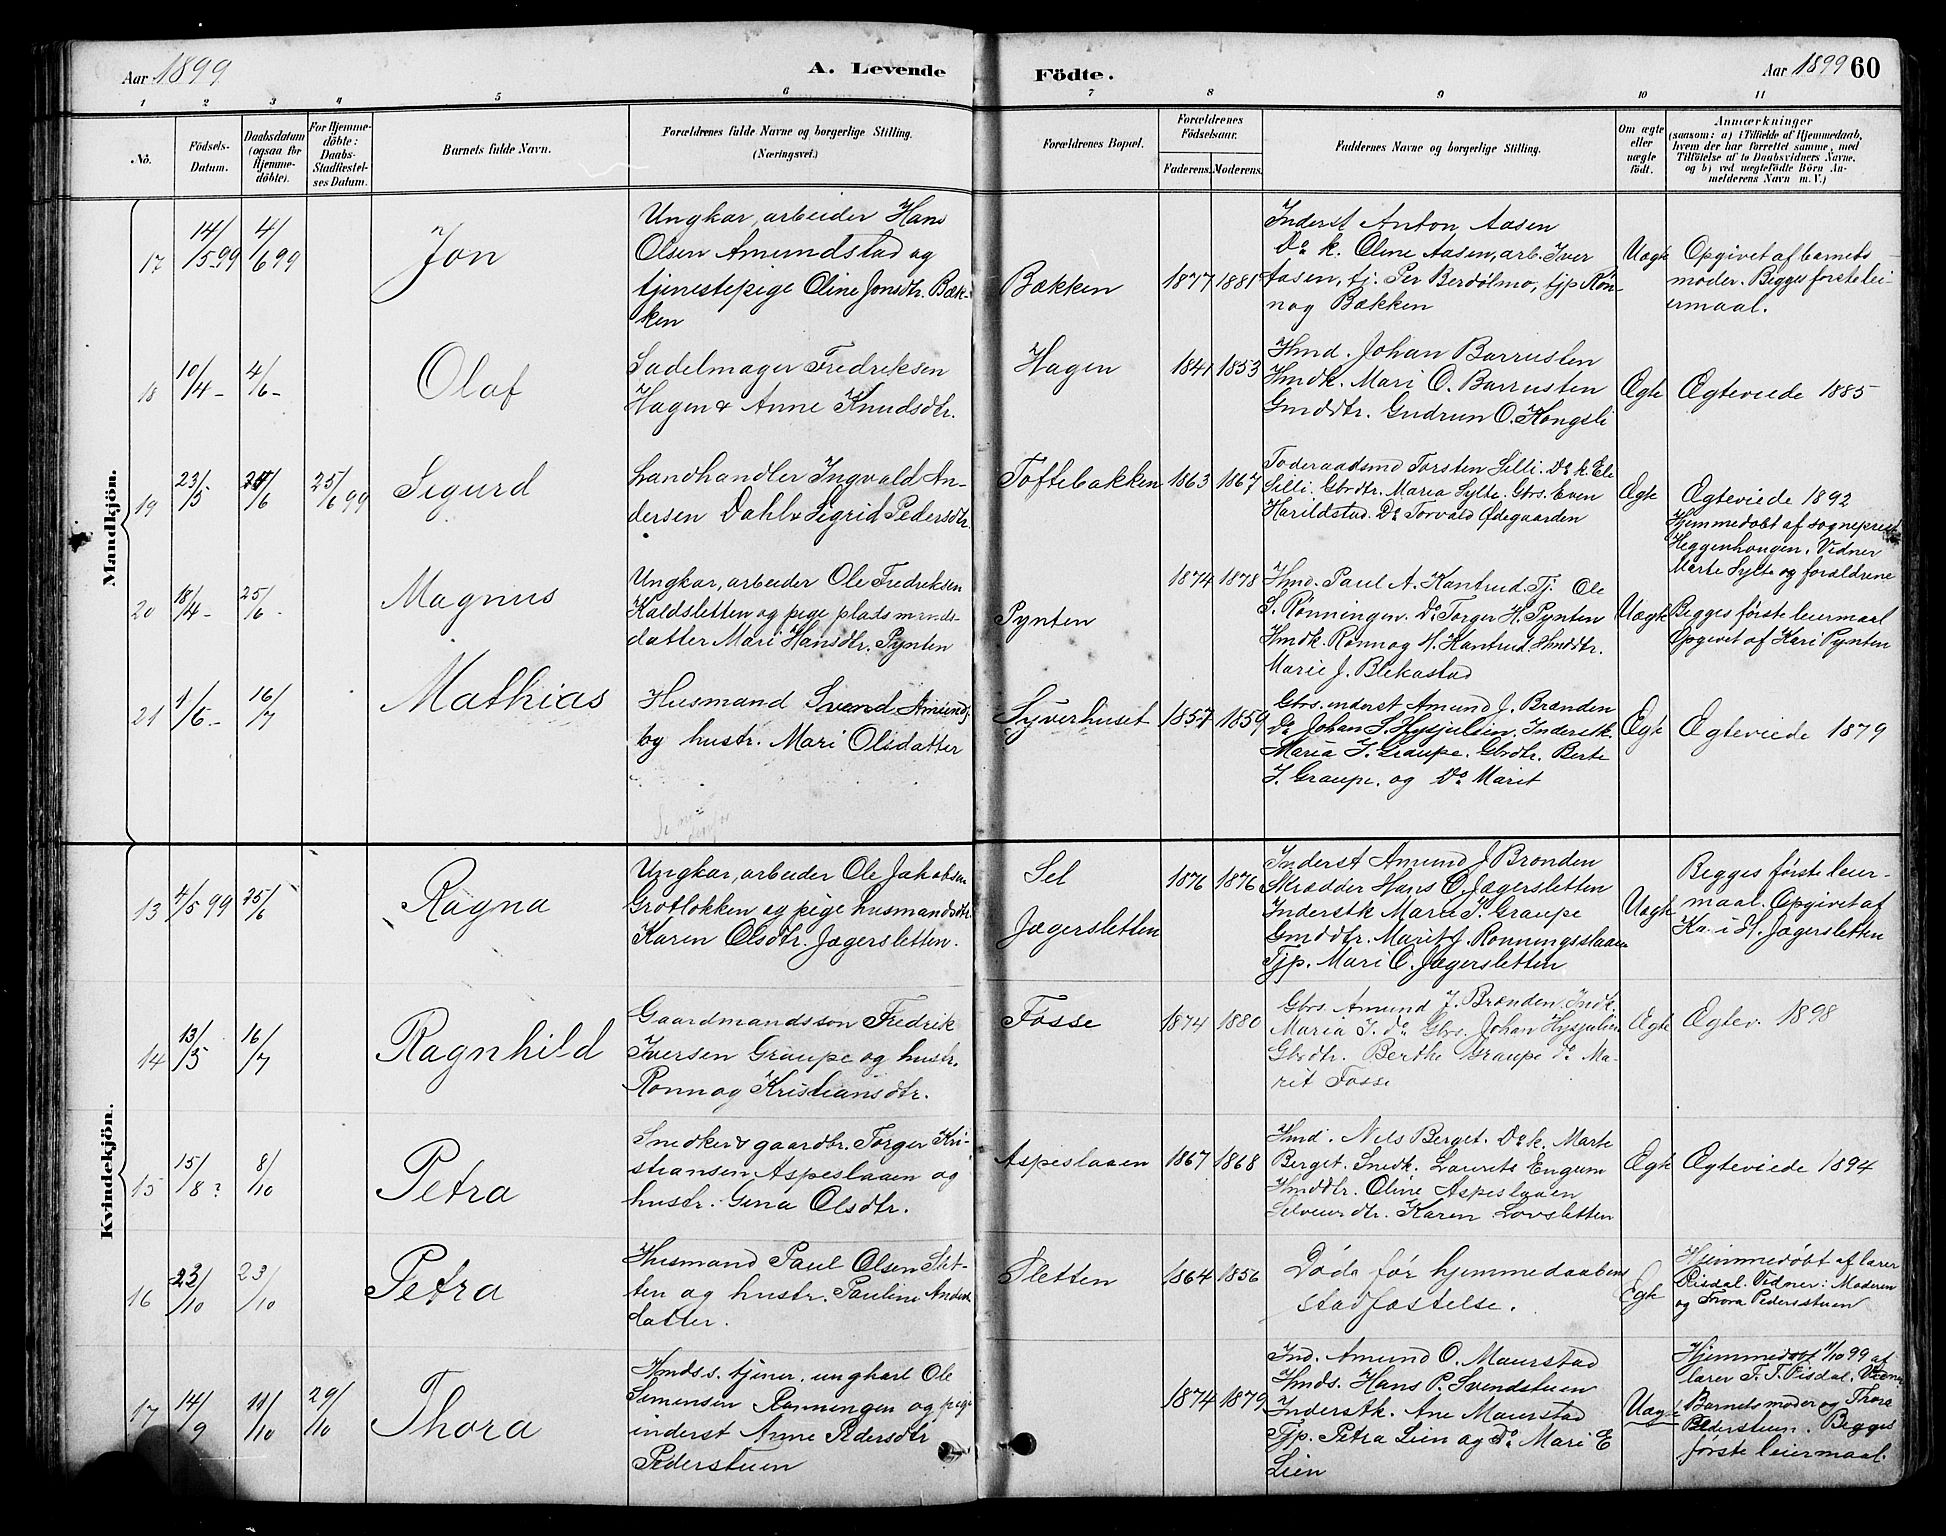 Aar 1899
A. Levende Födte.
Aar 1899 60
1 2 3 4 5 6 7 8 9 10 11
No.
Födsels-
Datum.
Daabsdatum
(ogsaa for
Hjemme-
döbte).
For Hjemme-
döbte:
Daabs-
Stadfæstel-
ses Datum.
Barnets fulde Navn.
Forældrenes fulde Navne og borgerlige Stilling.
(Næringsvei.)
Forældrenes Bopæl.
Forældrenes
Födselsaar.
Faderens. Moderens.
Faddernes Navne og borgerlige Stilling.
Om ægte
eller
uægte
födt.
Anmærkninger
(saasom: a) i Tilfælde af Hjemmedaab,
hvem der har forrettet samme, med
Tilföielse af to Daabsvidners Navne,
og b) ved uægtefödte Börn An-
melderens Navn m. V.)
Mandkjön.
17
14/5 99
4/6 99
Jon
Ungkar, arbeider Hans
Olsen Amundstad og
tjenestepige Oline Jonsdtr. Bæk-
ken
Bækken
1877 1881
Inderst Anton Aasen
Do k. Oline Aasen, arb. Iver
Aasen, tj. Per Berdølmo, tjp Røn-
nog Bækken
Uægte
Opgivet af barnets
moder. Begges første lei-
ermaal.
18
10/4 -
4/6 -
Olaf
Sadelmager Fredriksen
Hagen & Anne Knudsdtr.
Hagen
1841 1853
Hmd. Johan Barrusten
Hmdk. Mari O. Barrusten
Gmddtr. Gudrun O. Kongsli
Ægte
Ægteviede 1885
19
23/5
24/6
25/6 99
Sigurd
Landhandler Ingvald An-
dersen Dahl & Sigrid Pedersdtr.
Toftebakken
1863 1867
Torsten Selli. Do k. Eli
Selli. Gbrdtr. Maria Sylte. Gbrs. Even
Harildstad. Do Torvald Ødegaarden
Ægte
Ægteviede 1892
Hjemmedøbt af sogneprest
Heggenhougen. Vidner
Marte Sylte og forældrene
20
18/4 -
25/6 -
Magnus
Ungkar, arbeider Ole Fredriksen
Kaldsletten og pige pladsmands-
datter Mari Hansdtr. Pynten
Pynten
1874 1878
Hmd. Paul A. Kantrud. Tj. Ole
S. Rønningen. Do Torger H. Pynten
Hmdk. Rønnog H. Kantrud. Hmddtr.
Marie J. Blekastad
Uægte
Begges første leiermaal
Opgivet af Kari Pynten
21
1/6 -
16/7
Mathias
Husmand Svend Amunds.
og hustr. Mari Olsdatter
Syverhuset
1857 1859
Gbrs. inderst Amund J. Brænden
Do Johan S. Hysjulien. Inderstk.
Maria J. Graupe. Gbrdtr. Berte
J. Graupe. og Do Marit
Ægte
Ægteviede 1879
Kvindekjön.
13
4/5 99
25/6
Ragna
Ungkar, arbeider Ole Jakobsen
Grotløkken og pige husmandsdtr.
Karen Olsdtr. Jægersletten.
Sel
Jægersletten
1876 1876
Inderst Amund J. Brenden
Skrædder Hans O. Jægersletten
Inderstk Maria J. Graupe
Gmddtr. Marit J. Rønningsslaaen
Tjp. Mari O. Jægersletten
Uægte
Begges første leier-
maal. Opgivet af
Kari H. Jægersletten
14
13/5
16/7
Ragnhild
Gaardmandssøn Fredrik
Iversen Graupe og hustr.
Rønnog Kristiansdtr.
Fosse
1874 1880
Gbrs. Amund J. Brænden. Indk.
Maria J. do Gbrs. Johan Hysjulien
Gbrdtr. Berthe Graupe do Ma-
rit Fosse
Ægte
Ægtev. 1898
15
15/8 ?
8/10
Petra
Snedker & gaardbr. Torger Kri-
stiansen Aspeslaaen og
hustr. Gina Olsdtr.
Aspeslaaen
1867 1868
Hmd. Nels Berget. Do k. Marte
Berget. Snedk. Laurits Engum
Hmddtr. Oline Aspeslaaen
Selveierdtr. Karen Lovsletten
Ægte
Ægteviede 1894
16
23/10
23/10
Petra
Husmand Paul Olsen Slet-
ten og hustr. Pauline Anders
datter.
Sletten
1864 1856
Døde før hjemmedaabens
stadfæstelse.
Ægte
Hjemmedøbt af lærer
Risdal. Vidner: Moderen
og Thora Pedersstuen
17
14/9
11/10
29/10
Thora
Hmdss. tjener, ungkarl Ole
Simensen Rønningen og pige
inderst Anne Pedersdtr
Pederstuen
1874 1879
Ind. Amund O. Maurstad
Hmds. Hans P. Svendstuen
Inderstk. Ane Maurstad
Tjp. Petra Lien og do Mari E
Lien
Uægte
Hjemmedøbt 11/10 99 af
lærer T. T. Risdal. Vidner
Barnets moder og Thora
Pederstuen. Begges
første leiermaal.